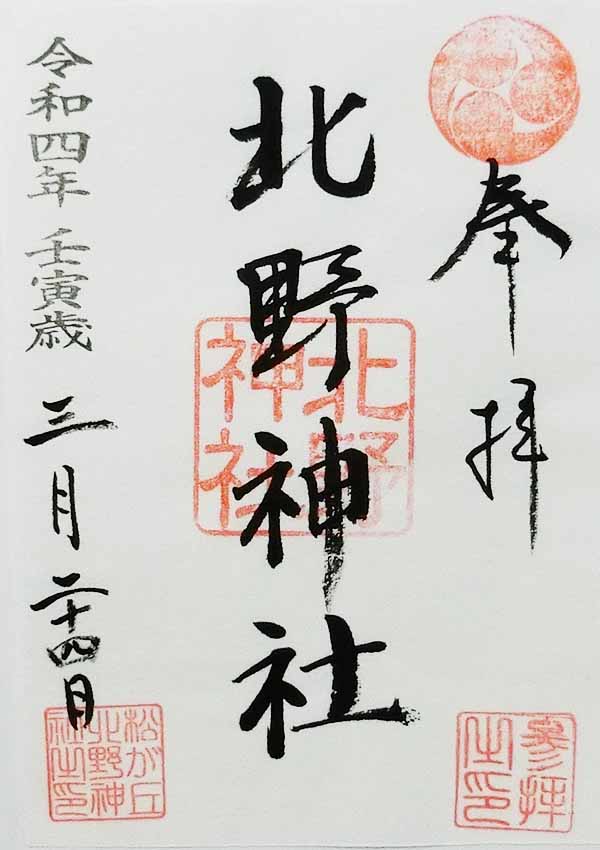 奉拝
北野神社
北野神社
令和四年 壬寅歳 三月二十四日
参拝之印
松が丘北野神社之印